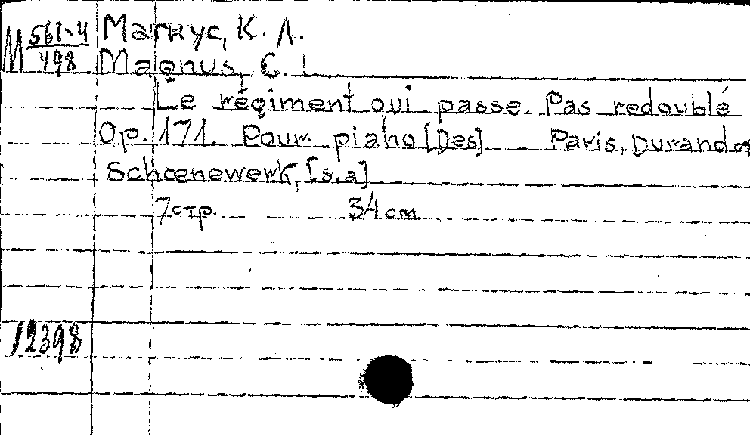 М 561-4/498
Магнус, К. Л.
Magnus, C. L
Le régiment qui passe. Pas redoublé
Op. 171. Pour piano [Des] Paris, Durand et
Schoenewerk, [s.a]
7 стр. 34 cm
12398